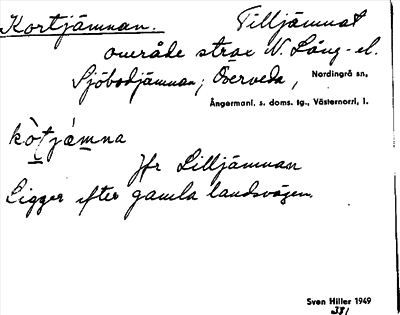 Kortjämnan. Tilljämnat
område strax N. Lång- el.
Sjöbodjämnan; Överveda, Nordingrå sn,
Ångermanl. s. doms. tg., Västernorrl. l.
kò̱tjám̱na
Jfr Lilljämnan
Ligger efter gamla landsvägen.
Sven Hiller 1949
381